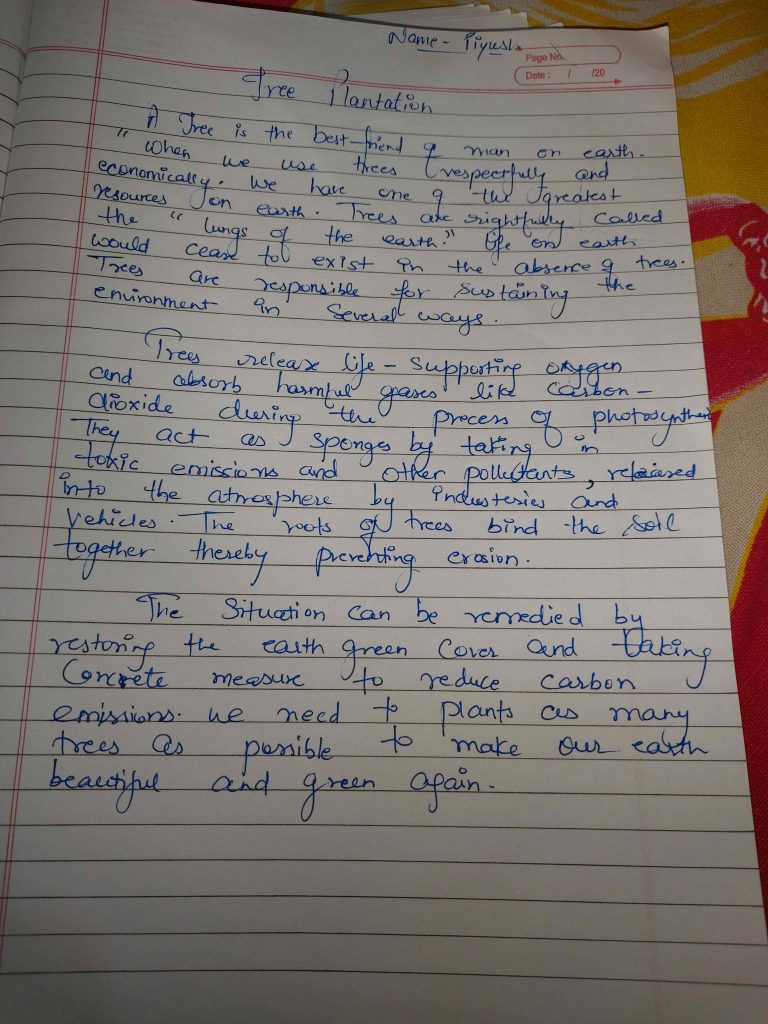 Name - Piyush
Page No.
Date : / /20
Tree Plantation
A Tree is the best friend of man on earth.
"When we use trees respectfully and
economically. We have one of the greatest
resources on earth. Trees are rightfully called
the "lungs of the earth." life on earth
would cease to exist in the absence of trees.
Trees are responsible for sustaining the
environment in several ways.
Trees release life - supporting oxygen
and absorb harmful gases like carbon -
dioxide during the process of photosynthesis
They act as sponges by taking in
toxic emissions and other pollutants, released
into the atmosphere by industeries and
vehicles. The roots of trees bind the soil
together thereby preventing erosion.
The situation can be remedied by
restoring the earth green cover and taking
Concrete measure to reduce carbon
emissions. we need to plants as many
trees as possible to make our earth
beautiful and green again.